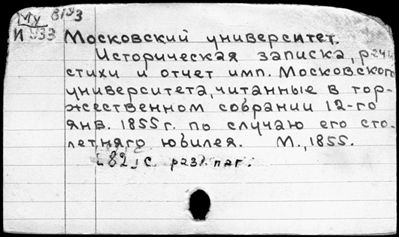 Му 81У3
И 933
Московский университет.
Историческая записка, речи,
стихи и отчет имп. Московского
университета, читанные в тор-
жественном собрании 12-го
янв. 1855 г. по случаю его сто-
летняго юбилея. М., 1855.
[82] с. разл. паг.